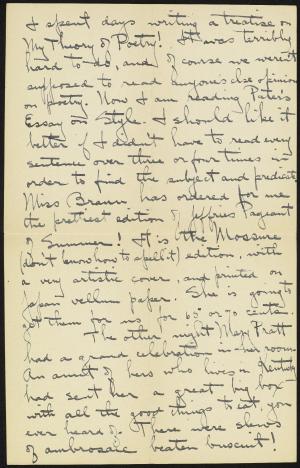 I spent days writing a treatise on
My Theory of Poetry! It was terribly
hard to do, and of course we weren't
supposed to read anyone's else opinion
on poetry. Now I am reading Pater's
Essay on Style. I should like it
better if I didn't have to read every
sentence over three or four times in
order to find the subject and predicate
Miss Brann has ordered for me
the prettiest edition of Jeffries Pageant
of Summer! It is the Mossure
(don't know how to spell it) edition, with
a very artistic cover, and printed on
Japan vellum paper. She is going to
get them for us for 65 or 70 cents.
The other night Mary Pratt
had a grand celebration in her room
An aunt of hers who lives in Kentucky
had sent her a great big box
with all the good things to eat, you
ever heard of. There were slews
of ambrosaic beaten buscuit!